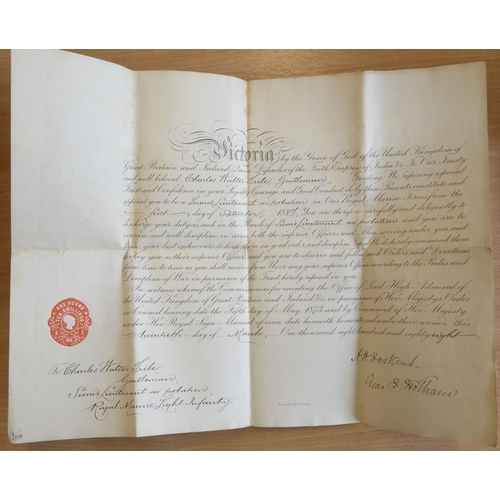 Victoria by the Grace of God of the United Kingdom of
Great Britain and Ireland Queen Defender of the Faith Empress of India &c To Our Trusty
and well beloved Charles Walter Tribe Gentleman Greeting We reposing especial
Trust and Confidence in your Loyalty Courage and Good Conduct do by these Presents constitute and
appoint you to be a Second Lieutenant on probation in Our Royal Marine Forces from the
first day of September 1887. You are therefore carefully and diligently to
discharge your duty as such in the Rank of Second Lieutenant on probation and you are to
exercise and well discipline in arms both the inferior Officers and Men serving under you and
use your best endeavours to keep them in good order and discipline do hereby command them
to Obey you as their superior Officer and you are to observe and follow Orders and Directions
from time to time as you shall receive from Us or any your superior Officer according to the Rules and
Discipline of War in pursuance of the Trust hereby reposed in you
In witness whereof the Commissioners for executing the Office of Lord High Admiral of
the United Kingdom of Great Britain and Ireland &c in pursuance of Her Majesty's Order
in Council bearing date the fifth day of May 1873 and by Command of Her Majesty
under Her Royal Sign Manual of even date herewith hereunto subscribe their names this
Twentieth day of March One thousand eight hundred and eighty eight
ONE POUND
To Charles Walter Tribe
Gentleman
Second Lieutenant on probation
Royal Marine Light Infantry
A H Hoskins